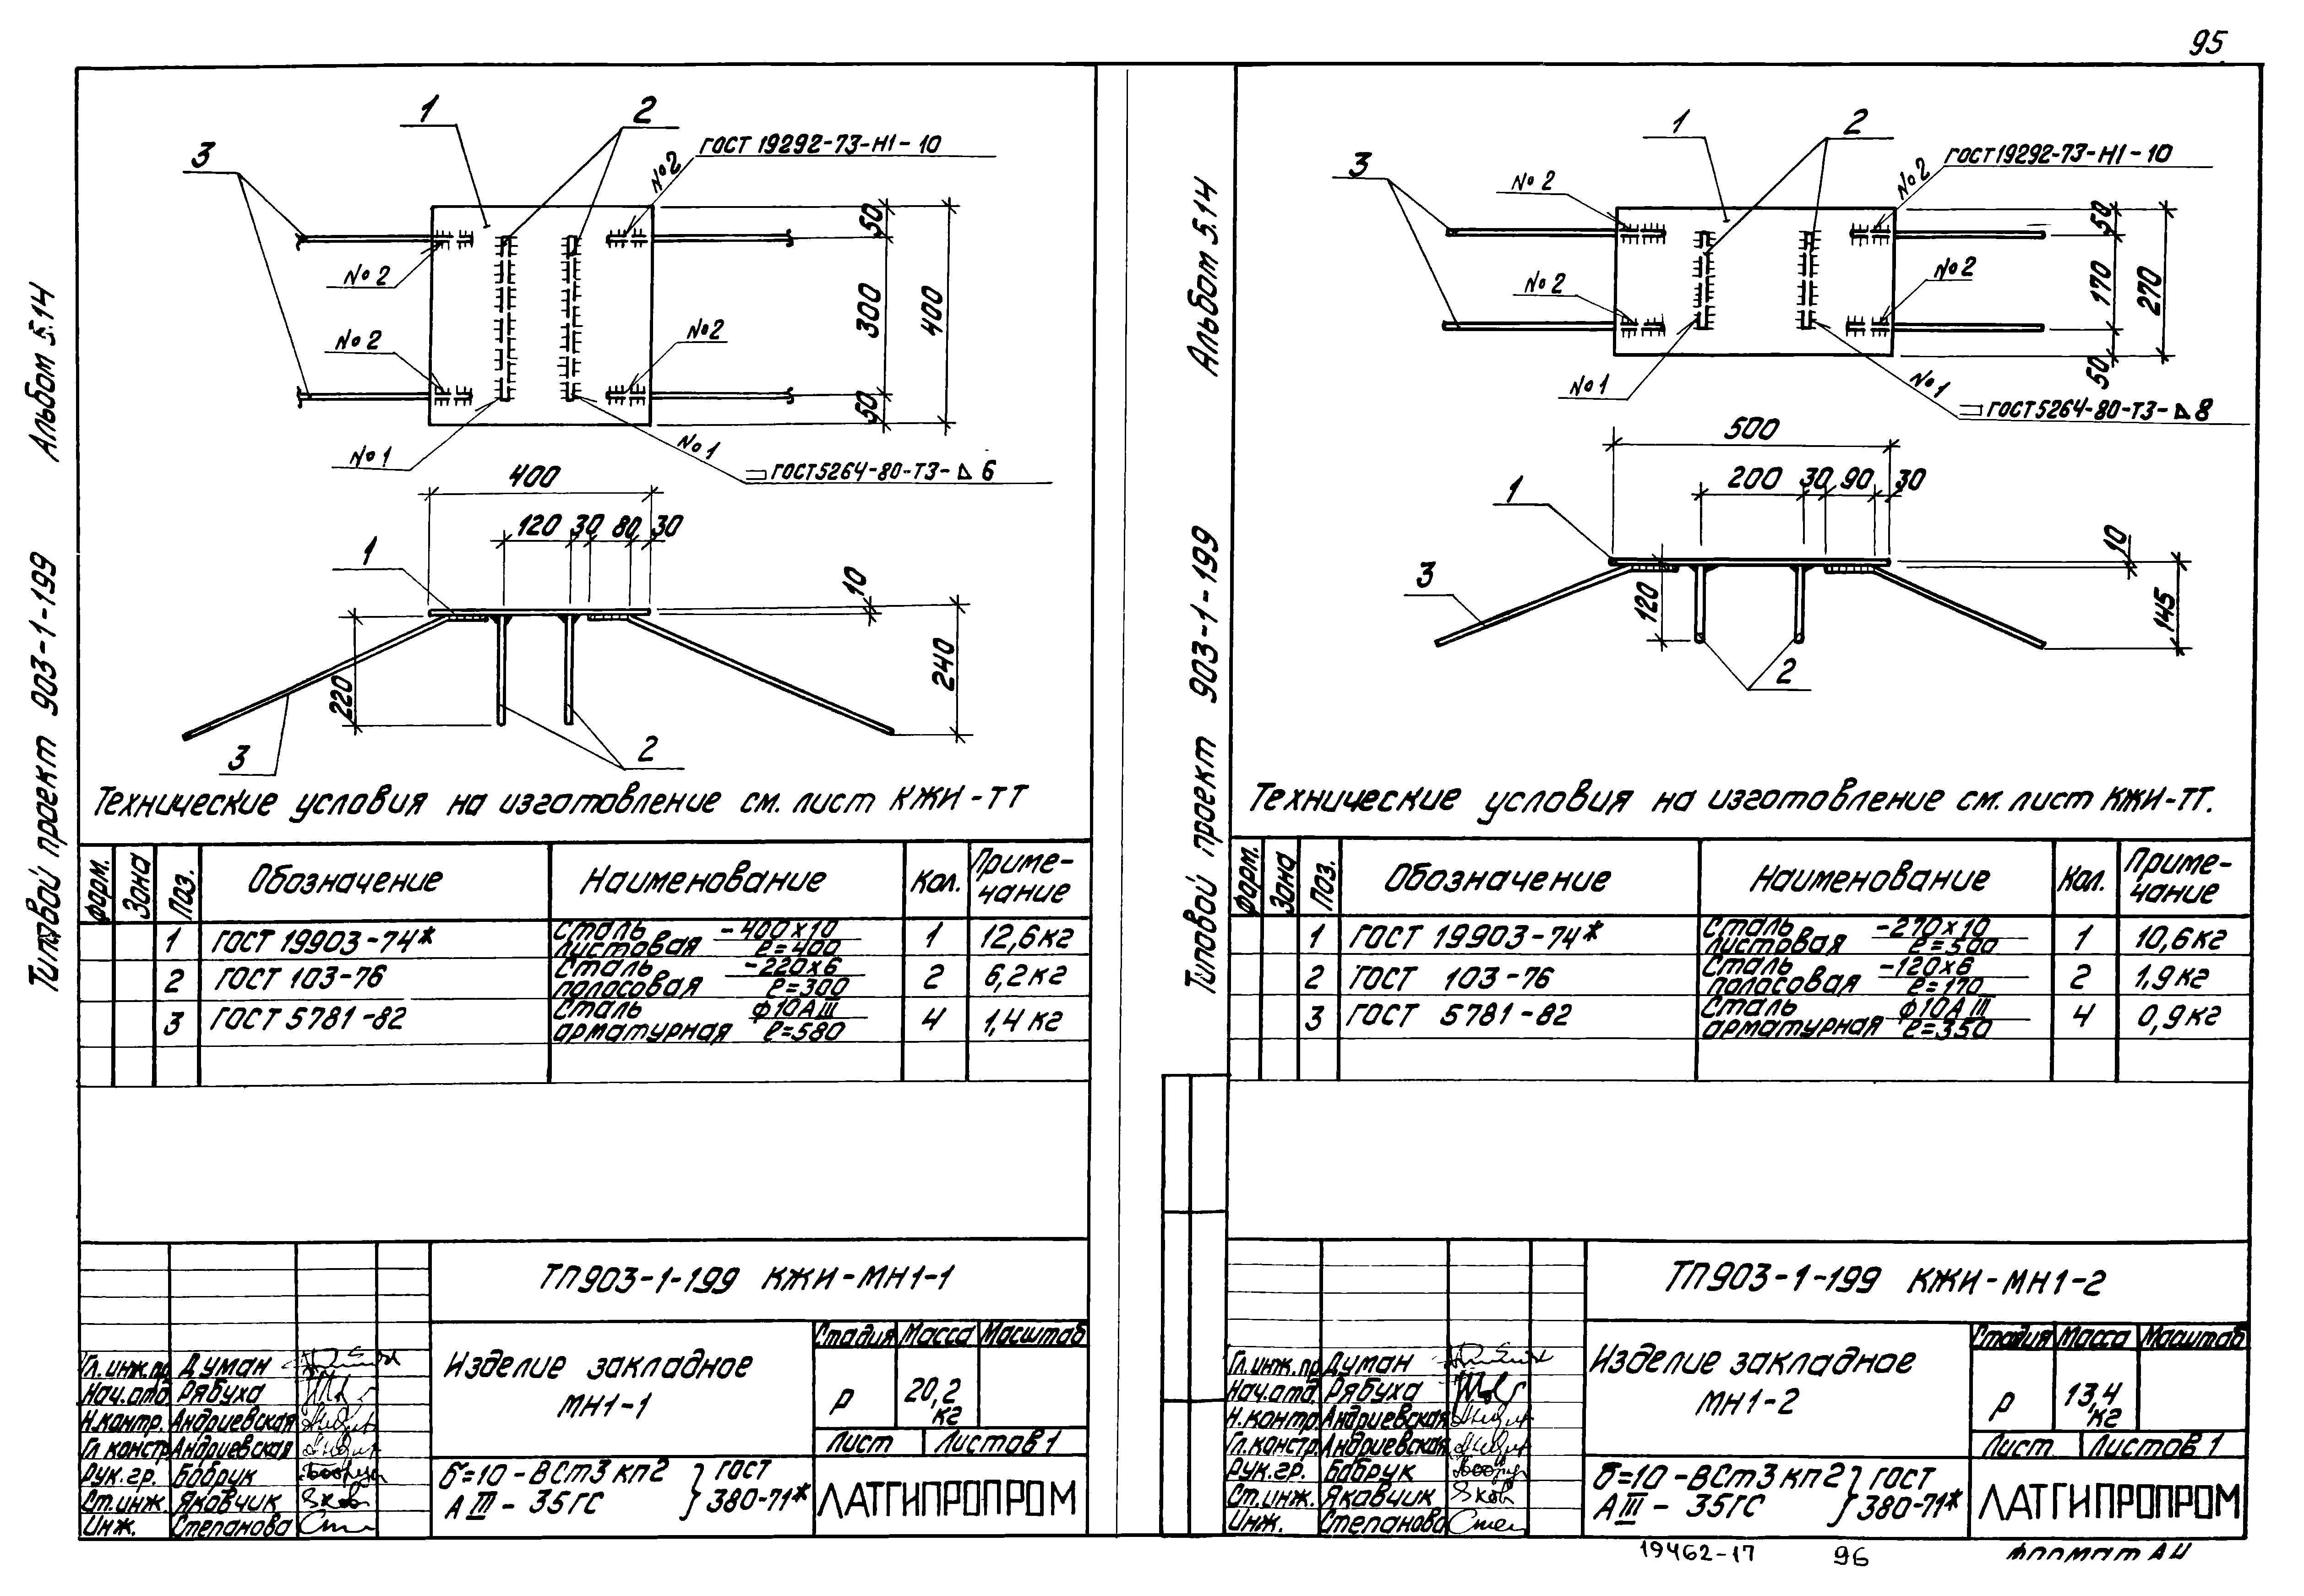 95
Альбом 5.14
Типовой проект 903-1-199
1
2
3
ГОСТ 19292-73-Н1-10
№2
№2
№2
№2
№1
№1
ГОСТ 5264-80-Т3-Δ 6
50
300
400
50
400
120 30 80 30
1
10
220
240
3
2
Технические условия на изготовление см. лист КЖИ-ТТ
Форм. Зона Поз. Обозначение Наименование Кол. Примечание
1 ГОСТ 19903-74* Сталь листовая -400х10 ℓ=400 1 12,6кг
2 ГОСТ 103-76 Сталь полосовая -220х6 ℓ=300 2 6,2кг
3 ГОСТ 5781-82 Сталь арматурная ф10АIII ℓ=580 4 1,4кг
ТП903-1-199 КЖИ-МН1-1
Изделие закладное
МН1-1
Стадия Масса Масштаб
Р 20,2 кг
Лист Листов 1
Гл.инж.пр. Думан
Нач.отд. Рябуха
Н.контр. Андриевская
Гл.констр. Андриевская
Рук.гр. Бобрук
Ст.инж. Яковчик
Инж. Степанова
б=10-ВСт3кп2 } ГОСТ
АIII-35ГС } 380-71*
ЛАТГИПРОПРОМ
Альбом 5.14
Типовой проект 903-1-199
1
2
3
ГОСТ 19292-73-Н1-10
№2
№2
№2
№2
№1
№1
ГОСТ 5264-80-Т3-Δ 8
50
170
270
50
500
200 30 90 30
1
10
120
145
3
2
Технические условия на изготовление см. лист КЖИ-ТТ.
Форм. Зона Поз. Обозначение Наименование Кол. Примечание
1 ГОСТ 19903-74* Сталь листовая -270х10 ℓ=500 1 10,6кг
2 ГОСТ 103-76 Сталь полосовая -120х6 ℓ=170 2 1,9кг
3 ГОСТ 5781-82 Сталь арматурная ф10АIII ℓ=350 4 0,9кг
ТП903-1-199 КЖИ-МН1-2
Изделие закладное
МН1-2
Стадия Масса Масштаб
Р 13,4 кг
Лист Листов 1
Гл.инж.пр. Думан
Нач.отд. Рябуха
Н.контр. Андриевская
Гл.констр. Андриевская
Рук.гр. Бобрук
Ст.инж. Яковчик
Инж. Степанова
б=10-ВСт3кп2 } ГОСТ
АIII-35ГС } 380-71*
ЛАТГИПРОПРОМ
19462-17 96 Формат А4